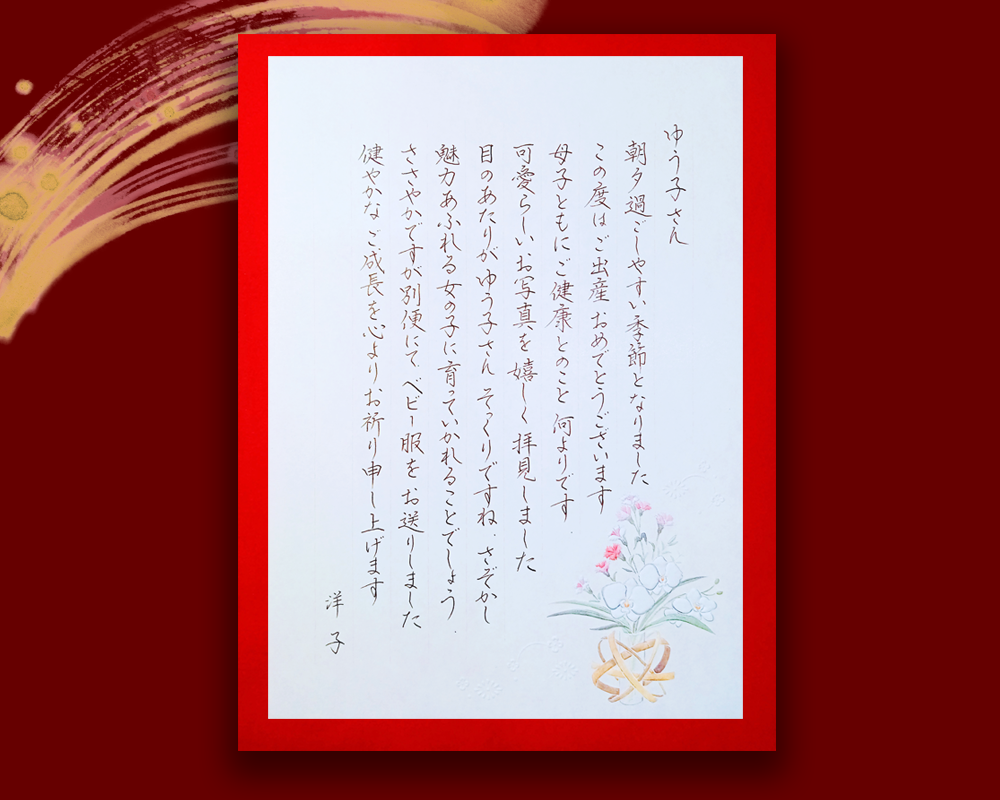 ゆう子さん
朝夕過ごしやすい季節となりました
この度はご出産おめでとうございます
母子ともにご健康とのこと何よりです.
可愛らしいお写真を嬉しく拝見しました
目のあたりがゆう子さんそっくりですね.さぞかし
魅力あふれる女の子に育っていかれることでしょう.
ささやかですが別便にてベビー服をお送りしました
健やかなご成長を心よりお祈り申し上げます
洋子